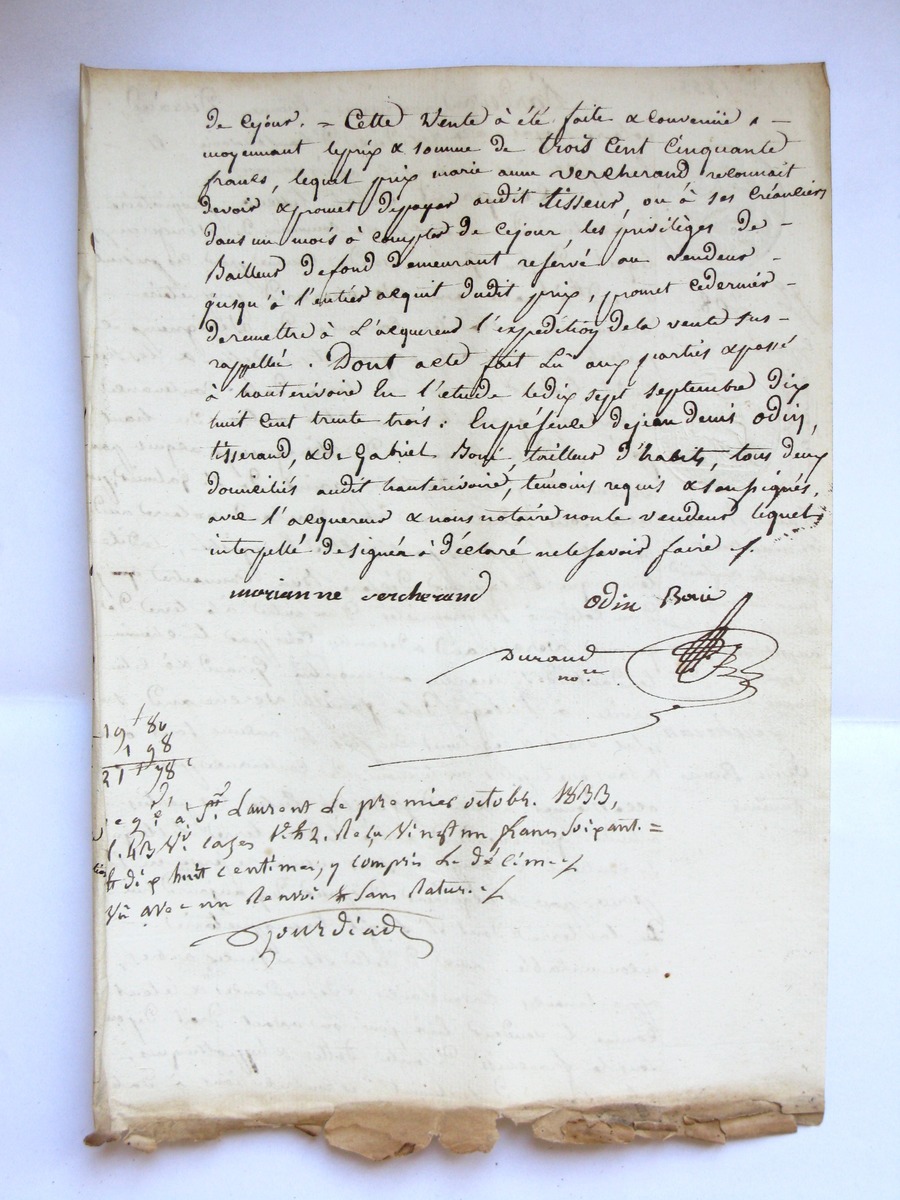 de cejour. = Cette Vente à été faite & convenüe, -
moyennant leprix & somme de trois Cent Cinquante
francs, lequel prix marie anne vercherand reconnait
devoir &promet depayer audit tisseur, ou à ses créanliers
dans un mois à compter de cejour, les privilèges de -
Bailleur defond demeurant reservé au vendeur -
jusqu'à l'entiér acquit dudit prix, promet cedernier -
deremettre à L'acquereur l'expedition dela vente sus-
rappellée. Dont acte fait Lû aux parties &passé
à hauterivoire En l'étude ledix sept septembre dix
huit cent trente trois: Enprésence dejean denis odin,
tisserand, &de Gabriel Boué, tailleur d'habits, tous deux
domiciliés audit hauterivoire, témoins requis &soussignés,
avec l'acquereur & nous notaire nonle vendeur lequel
interpellé designér à déclaré nelesavoir faire /.
marianne vercherand odin Boué
Durand
nore
19f 80
1 98
21f 78c
à St Laurent Le premier octobr. 1833,
f. 43 Vo. cases 1re & 2. Reçu Vingt un francs Soixante =
& dix huit centimes, y compris Le décime /
Vû avec un Renvoi & sans Ratur. /